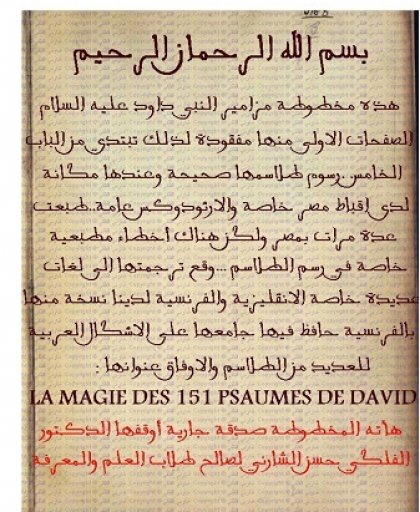 بسم الله الرحمان الرحيم
هذه مخطوطة مزامير النبي داود عليه السلام
الصفحات الاولى منها مفقودة لذلك تبتدي من الباب
الخامس .رسوم طلاسمها صحيحة وعندها مكانة
لدى اقباط مصر خاصة والارثودوكس عامة .طبعت
عدة مرات بمصر ولكن هناك أخطاء مطبعية
خاصة في رسم الطلاسم ...وقع ترجمتها الى لغات
عديدة خاصة الانقليزية والفرنسية لدينا نسخة منها
بالفرنسية حافظ فيها جامعها على الاشكال العربية
للعديد من الطلاسم والاوفاق عنوانها :
LA MAGIE DES 151 PSAUMES DE DAVID
هاته المخطوطة صدقة جارية أوقفها الدكتور
الفلكي حسن الشارني لصالح طلاب العلم والمعرفة